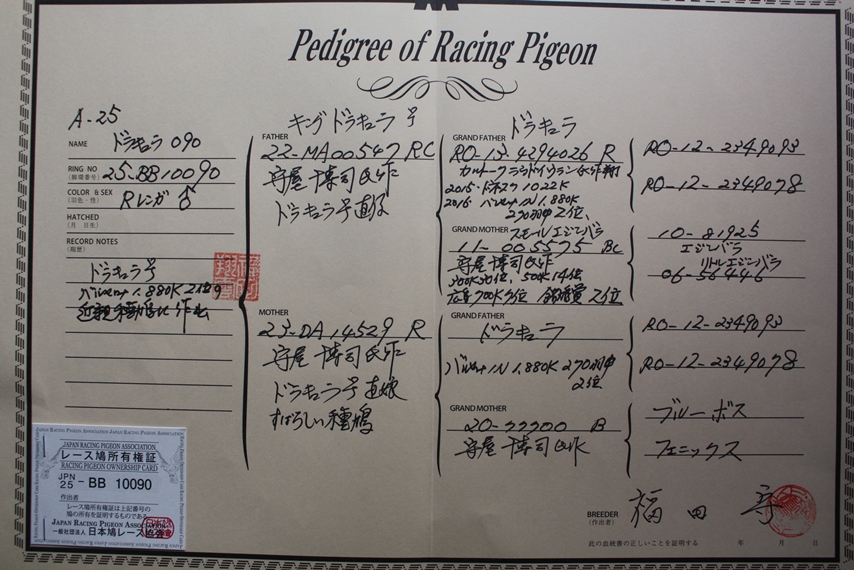 Pedigree of Racing Pigeon
A-25
NAME ドラキュラ 090
RING NO 25-BB10090
(脚環番号)
COLOR & SEX Rレンガ ♂
(羽色・性)
HATCHED
(月 日生)
RECORD NOTES
ドラキュラ号
1.880K 2位の
近親
キング ドラキュラ 号
FATHER
22-MA00547 RC
守屋 博司氏作
ドラキュラ号直仔
MOTHER
23-DA14529 R
守屋 博司氏作
ドラキュラ号 直娘
すばらしい種鳩
GRAND FATHER ドラキュラ
RO-13-4294026 R
2015 1022K
2016 1.880K
2位
GRAND MOTHER スモールエジンバラ
11-005575 BC
守屋 博司氏作
300K 500K14位
700K 2位
GRAND FATHER
ドラキュラ
1.880K 270羽中
2位
GRAND MOTHER
20-22200 B
守屋 博司氏作
RO-12-2349093
RO-12-2349078
10-81925
エジンバラ
リトルエジンバラ
06-56446
RO-12-2349093
RO-12-2349078
ブルーボス
フェニックス
BREEDER
(作出者)
福田
此の血統書の正しいことを証明する 年 月 日
JAPAN RACING PIGEON ASSOCIATION
レース鳩所有権証
RACING PIGEON OWNERSHIP CARD
JPN
25 - BB 10090
作出者
レース鳩所有権証は上記番号の
鳩の所有を証明するものである
JAPAN RACING PIGEON ASSOCIATION
一般社団法人 日本鳩レース協会